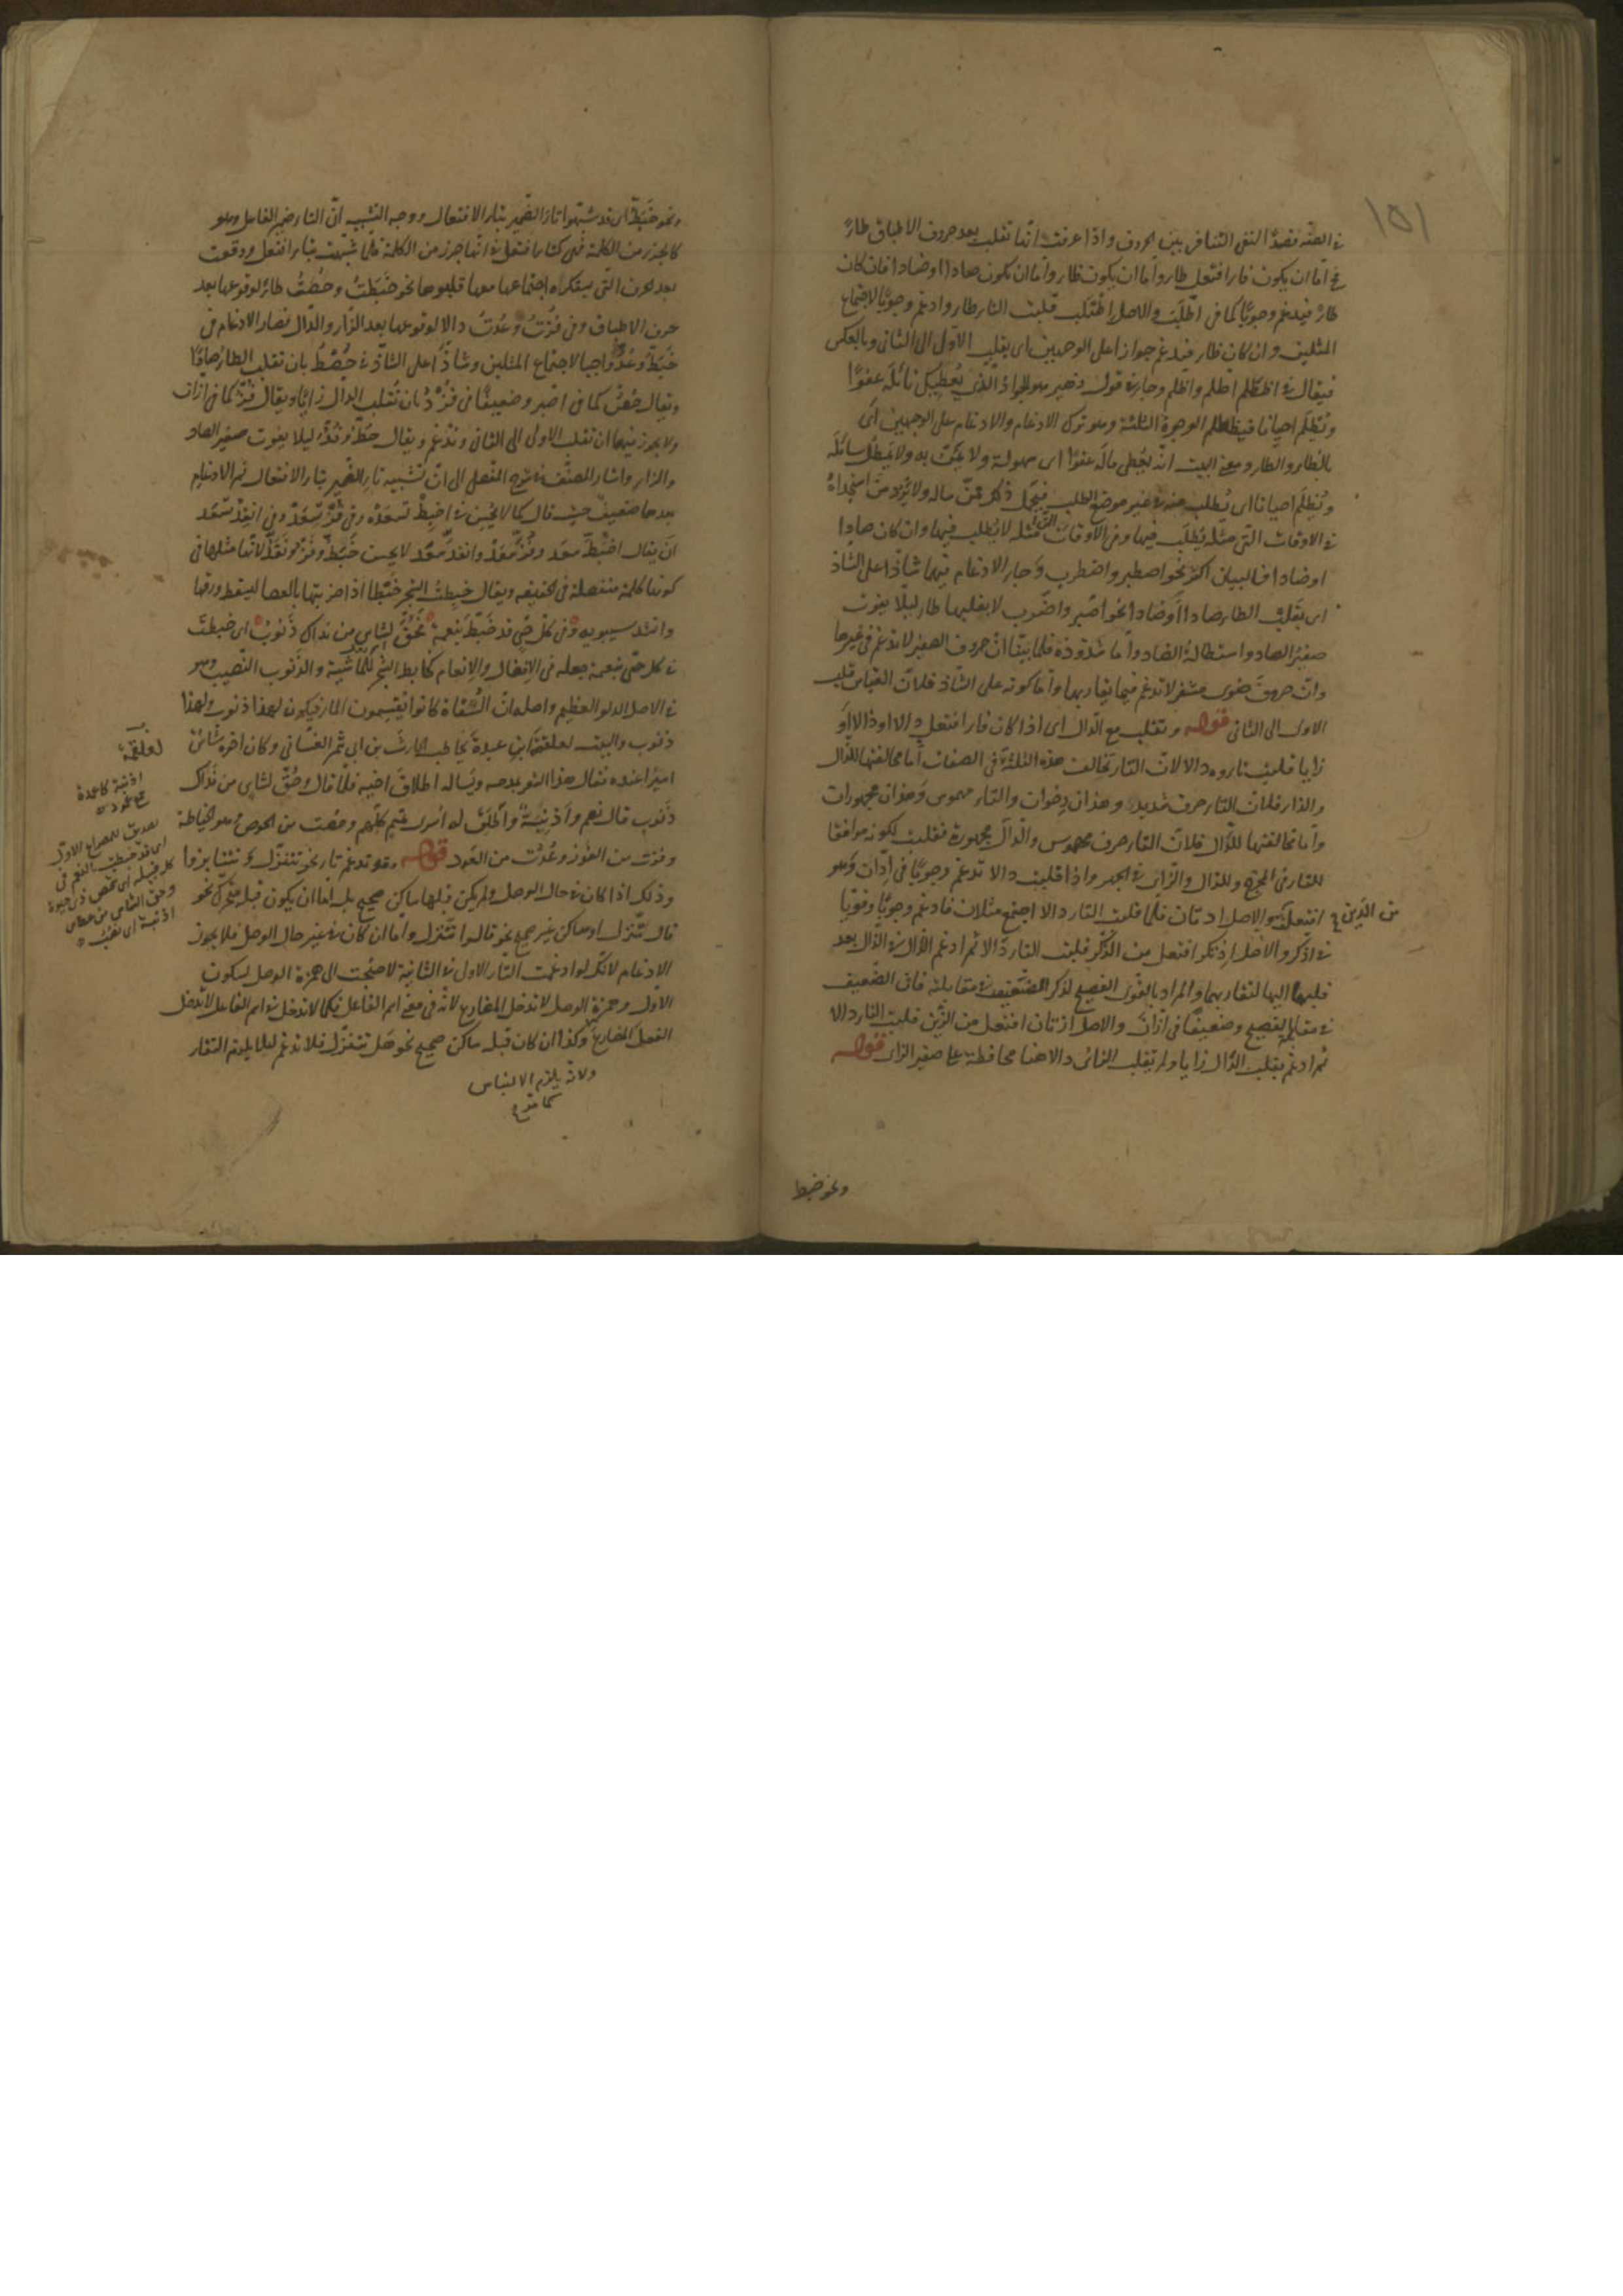 ١٥١
في الصفة قصدًا لنفي التنافر بين الحروف واذا عرفت انّها تقلب بعد حروف الاطباق طاءً
امّا ان يكون فاء افتعل طاء وامّا ان يكون ظاء وامّا ان يكون صادا او ضادا فان كان
طاءً فيدغم وجوبًا كما في اطّلب والاصل اطتلب قلبت التاء طاء وادغم وجوبًا لاجتماع
المثلين وان كان ظاء فيدغم جوازا على الوجهين اى بقلب الاوّل الى الثانى وبالعكس
فيقال في اظطلم اطّلم واظّلم وجاء في قول زهير هو الجواد الّذى يُعطيك نائلَه عفوًا
ويُظلم احيانا فيظطلم الوجوه الثلثة وهو ترك الادغام والادغام على الوجهين اى
بالظاء والطاء ومعنى البيت انّه يُعطى ماله عفوًا اى سهولة ولا يمنّ به ولا يمطل سائله
ويُظلم احيانا اى يُطلب منه في غير موضع الطلب فيحمل ذلك عن ماله ولا يردّ من استجداهُ
في الاوقات التى مثله يُطلب فيها وفي الاوقات التى مثله لا يُطلب فيها وان كان صادا
او ضادا فالبيان اكثر نحو اصطبر واضطرب وجاء الادغام فيها شاذّا على الشاذّ
اى بقلب الطاء صادا او ضادا نحو اصّبر واضّرب لا بقلبها طاء ليلا يفوت
صفير الصاد واستطالة الضاد وامّا شذوذه فلما بيّنا انّ حروف الصفير لا تدغم في غيرها
وانّ حروف ضوى مشفر لا تدغم فيما يقاربها وامّا كونه على الشاذّ فلانّ القياس قلب
الاول الى الثانى قوله وتقلب مع الدال اى اذا كان فاء افتعل دالا او ذالا او
زايا قلبت تاؤه دالا لانّ التاء تخالف هذه الثلثة في الصفات امّا مخالفتها للذال
والزاء فلانّ التاء حرف شديد وهذان رخوان والتاء مهموس وهذان مجهوران
وامّا مخالفتها للدال فلانّ التاء حرف مهموس والدال مجهورة فقلبت لكونه موافقا
للتاء في المخرج وللذال والزاى في الجهر واذا قلبت دالا تدغم وجوبًا في ادّان وهو
افتعل من الدّين والاصل ادتان فلمّا قلبت التاء دالا اجتمع مثلان فادغم وجوبًا وقويًا
في ادّكر والاصل اذتكر افتعل من الذّكر قلبت التاء دالا ثم ادغم الذال في الدال بعد
قلبها اليها لتقاربهما والمراد بالقوى الفصيح لذكر الضعيف في مقابلته فان الضعيف
في مقابلة الفصيح وضعيفًا في ازّان والاصل ازتان افتعل من الزّين قلبت التاء دالا
ثم ادغم بقلب الدال زايا ولم تقلب الزاى دالا هنا محافظة على صفير الزاى قوله
ونحو خبط
ونحو خَبَطُّ اى قد شبّهوا تاء الضمير بتاء الافتعال ووجه التشبيه انّ التاء ضمير الفاعل وهو
كالجزء من الكلمة فهى كتاء افتعل في انّها جزء من الكلمة فلمّا شبّهت بتاء افتعل ووقعت
بعد الحرف التى يستكره اجتماعها معها قلبوها نحو خبَطتُ وحُصتُ طاءً لوقوعها بعد
حرف الاطباق وفي فُزتُ وعُدتُ دالا لوقوعها بعد الزاء والدال فصار الادغام في
خبطّ وعُدّ واجبا لاجتماع المثلين وشاذّا على الشاذّ في حُصطُ بان تقلب الطاء صادًا
ويقال حُصّ كما في اصّبر وضعيفًا في فُزدُ بان تُقلب الدال زايًا ويقال فزّ كما في ازّان
ولا يجوز فيهما ان تقلب الاول الى الثانى وتُدغم ويقال حطّ وفُدّ ليلا يفوت صفير الصاد
والزاء واشار المصنّف في شرح المفصل الى انّ تشبيه تاء الضمير بتاء الافتعال ثم الادغام
بعدها ضعيف حيث قال كما لا يحسن في اخبط تسعده وفي فز سّعد وفي انقد سّعد
كونها كلمة منفصلة في الحقيقة ويقال خبطتُ الشجر خبطا اذا ضربتها بالعصا ليسقط ورقها
وانشد سيبويه وفي كلّ حيّ قد خبَطَّ بنعمة فحُقَّ لشاسٍ من نداك ذَنوبُ اى خبطتَ
في كل حيّ بنعمة جعله في الافضال والانعام كخابط الشجر للماشية والذّنوب النّصيب وهو
في الاصل الدلو العظيم واصله انّ السُّقاة كانوا يقتسمون الماء فيكون لهذا ذنوب ولهذا
ذنوب والبيت لعلقمة ابن عبدة يخاطب الحارث بن ابى شمر الغسّانى وكان اخوه شاس
اسيرًا عنده فقال هذا الشعر يمدحه ويسأله اطلاق اخيه فلمّا قال وحُقّ لشاسٍ من نداك
ذنوب قال نعم واذنبة واطلق له أسرى تميم كلّهم وحُصت من الحوص وهو الخياطة
وفزت من الفوز وعُدت من العود قوله وقد تدغم تاء نحو تتنزّل وتتنابزوا
وذلك اذا كان في حال الوصل ولم يكن قبلها ساكن صحيح بل امّا ان يكون قبله متحرّك نحو
قال تّنزل او ساكن غير صحيح نحو قالوا تّنزل وامّا ان كان في غير حال الوصل فلا يجوز
الادغام لانّك لو ادغمت التاء الاولى في الثانية لاحتجت الى همزة الوصل لسكون
الاول وهمزة الوصل لا تدخل المضارع لانّه في معنى اسم الفاعل فكما لا تدخل في اسم الفاعل لا تدخل
الفعل المضارع وكذا ان كان قبله ساكن صحيح نحو هل تتنزّل فلا تدغم ليلا يلزم التقاء
ولانّه يلزم الالتباس
كما مرّ
لعلقمة
اذنبة كاعمدة
جمع عمود